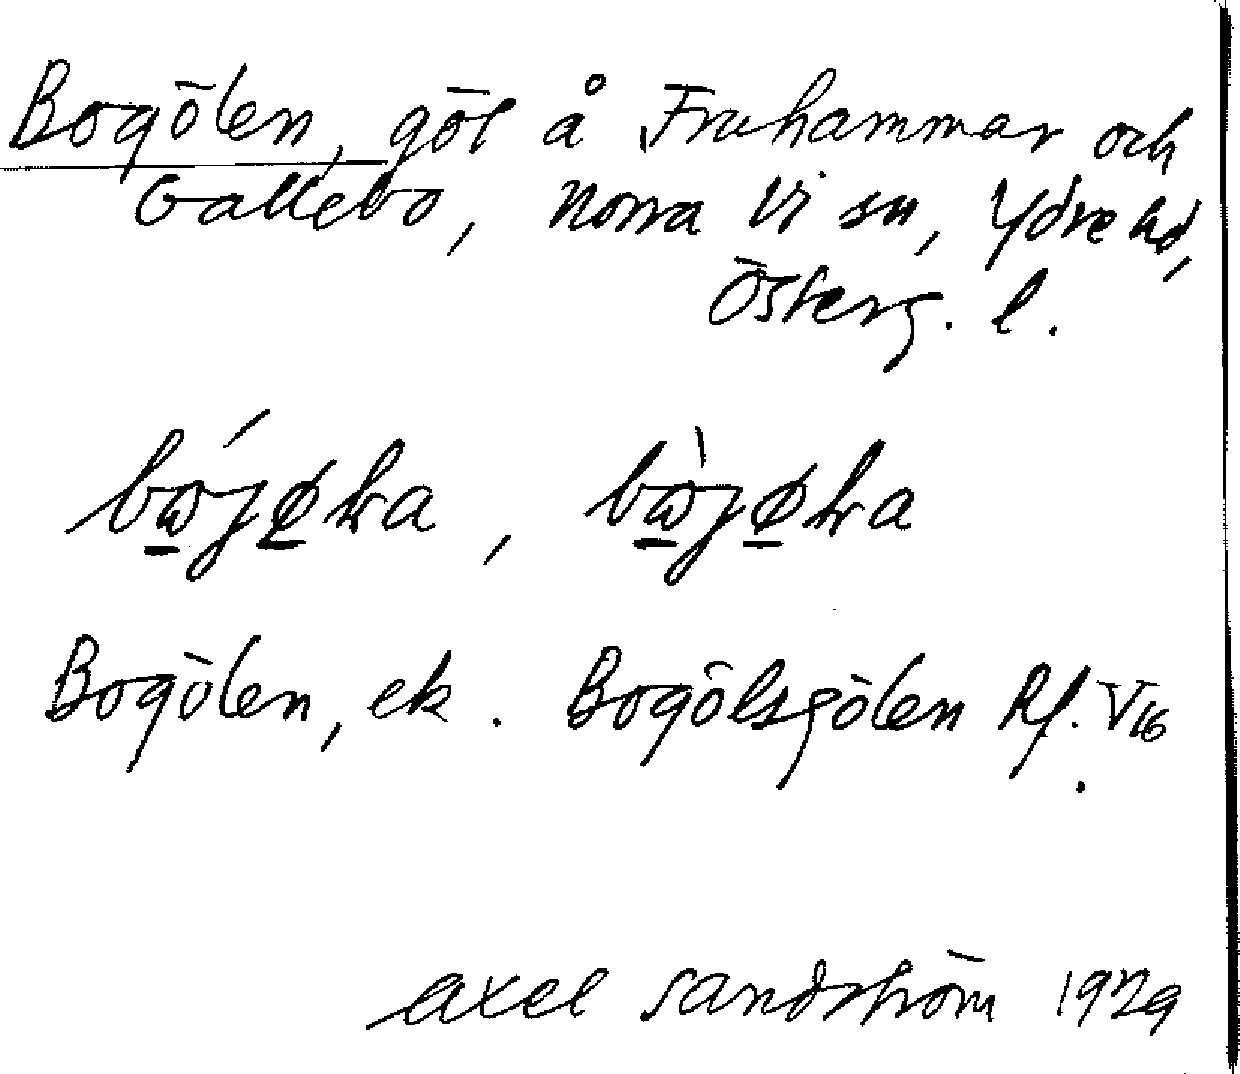 Bogölen, göl å Fruhammar och
Gallebo, Norra Vi sn, Ydre hd,
Österg. l.
Bogölen, ek. Bogölsgölen Rf. V16
Axel Sandström 1929